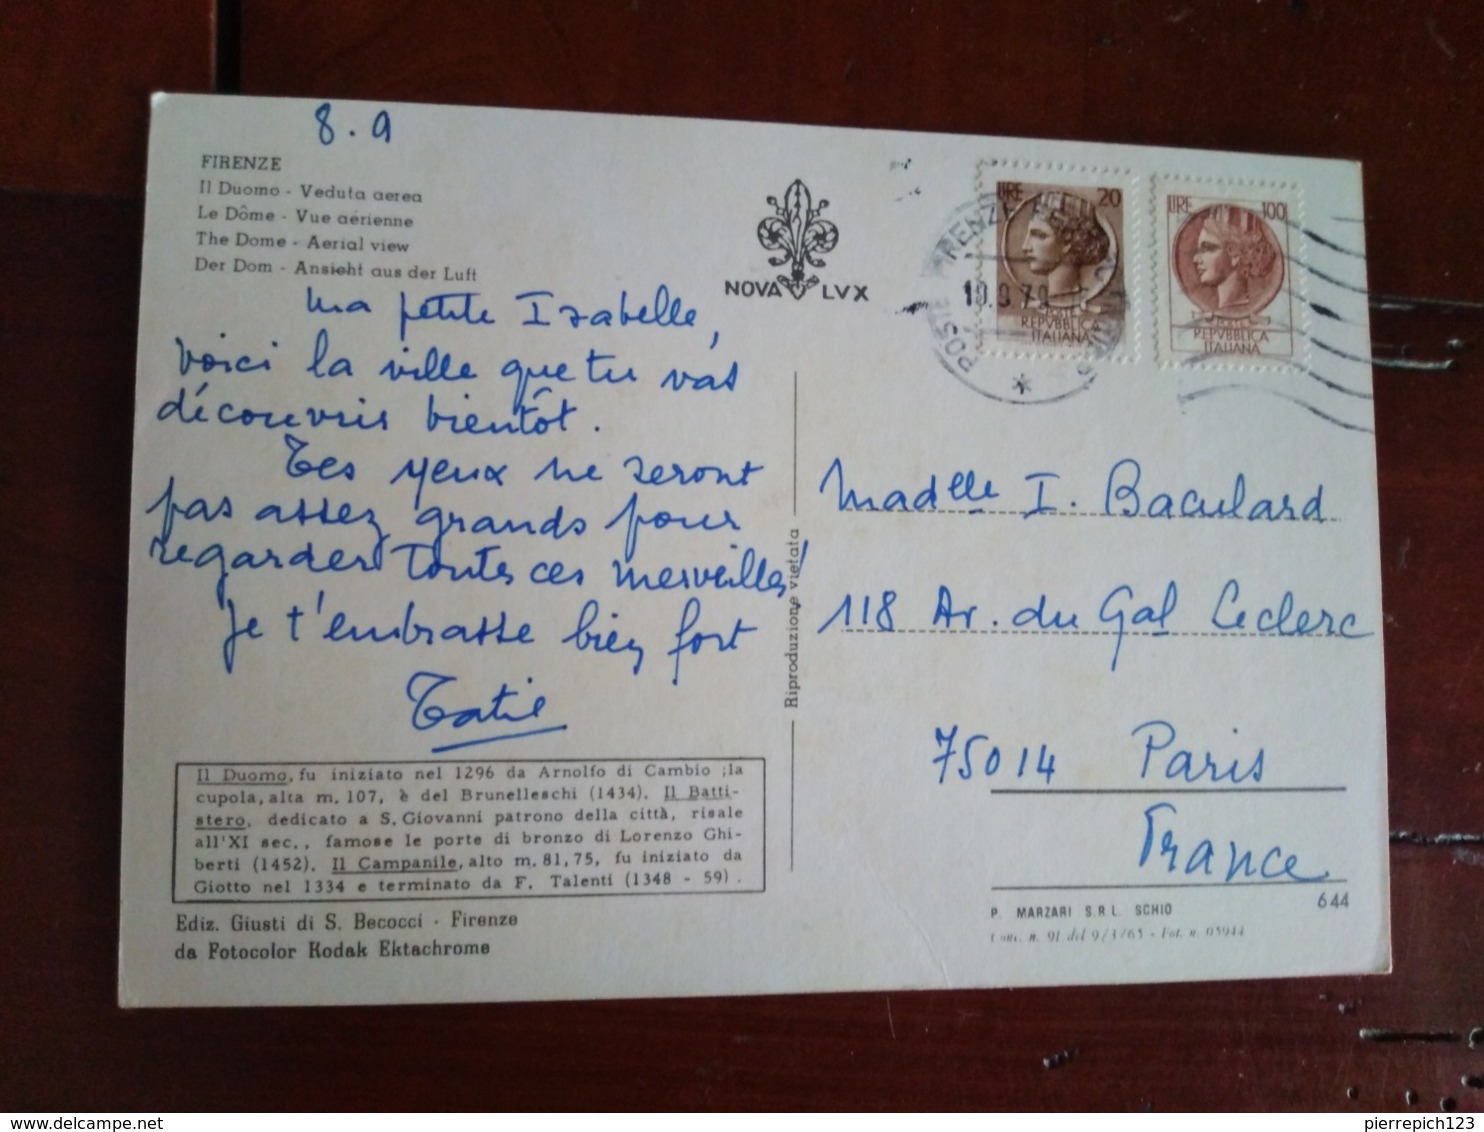 8.9
FIRENZE
Il Duomo - Veduta aerea
Le Dôme - Vue aérienne
The Dome - Aerial view
Der Dom - Ansicht aus der Luft
NOVA LVX
LIRE 20
POSTE
REPVBBLICA
ITALIANA
LIRE 100
POSTE
REPVBBLICA
ITALIANA
Ma petite Isabelle,
voici la ville que tu vas
découvrir bientôt.
Tes yeux ne seront
pas assez grands pour
regarder toutes ces merveilles!
Je t'embrasse bien fort
Tatie
Riproduzione vietata
Madelle I. Baculard
118 Av. du Gal Leclerc
75014 Paris
France
Il Duomo, fu iniziato nel 1296 da Arnolfo di Cambio ;la
cupola, alta m. 107, è del Brunelleschi (1434). Il Batti-
stero, dedicato a S. Giovanni patrono della città, risale
all'XI sec., famose le porte di bronzo di Lorenzo Ghi-
berti (1452). Il Campanile, alto m. 81,75, fu iniziato da
Giotto nel 1334 e terminato da F. Talenti (1348 - 59).
Ediz. Giusti di S. Becocci - Firenze
da Fotocolor Kodak Ektachrome
644
P. MARZARI S.R.L. SCHIO
n. 91 del 9/3/65 - n. 05944
pierrepich123